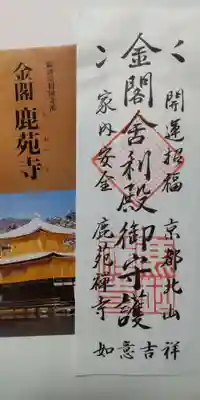 開運招福 京都北山
金閣舎利殿御守護
家内安全 鹿苑禅寺
如意吉祥
金閣 鹿苑寺